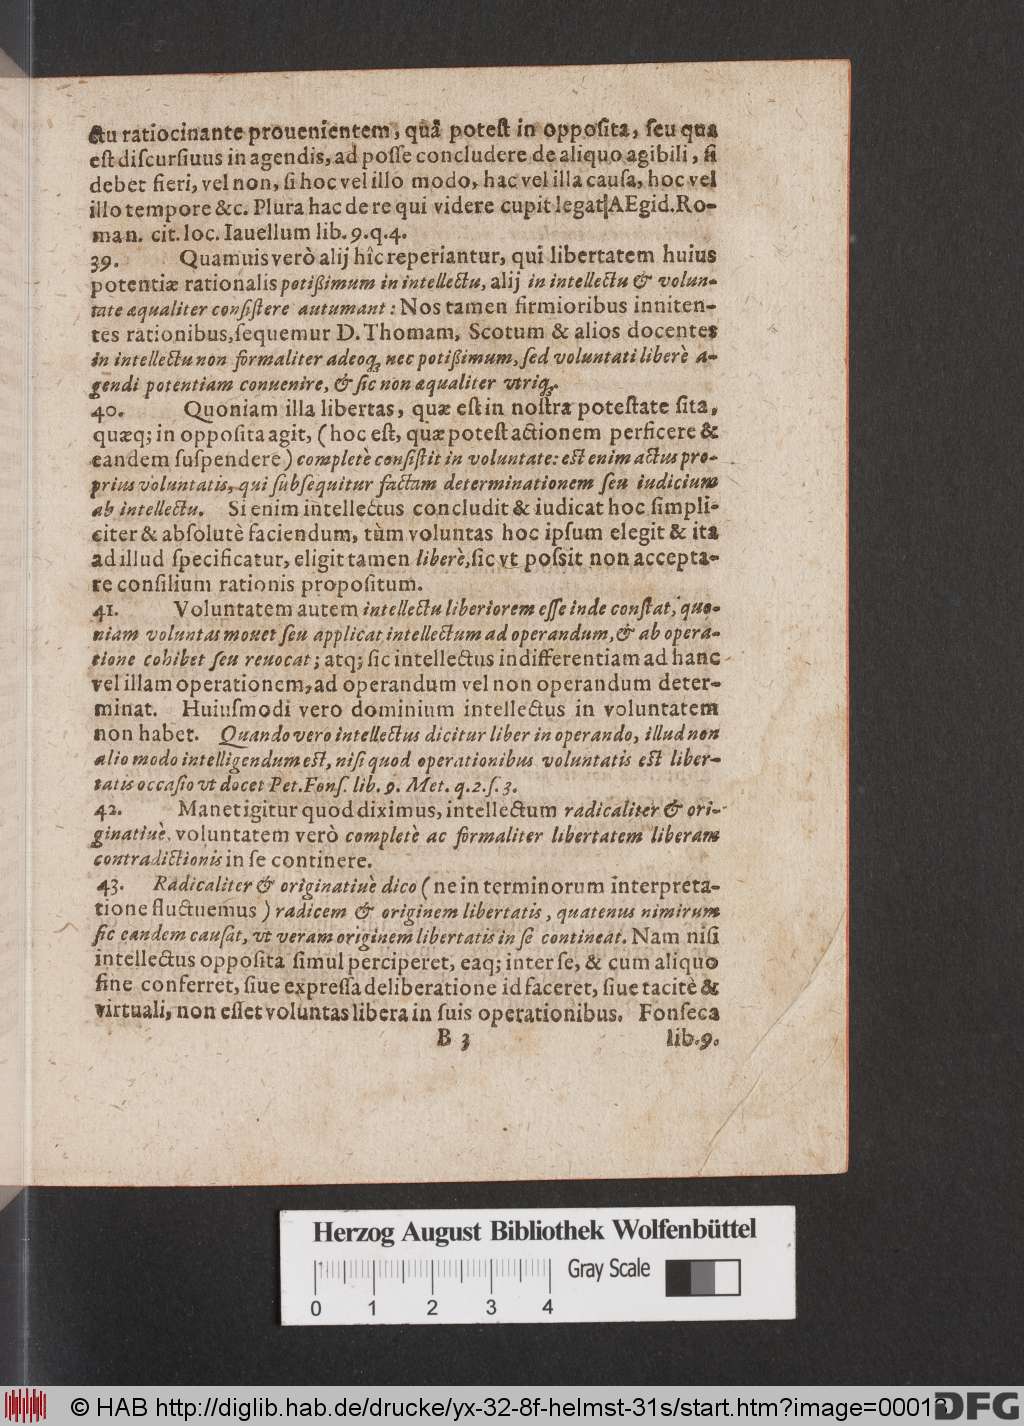 ctu ratiocinante prouenientem, quâ potest in opposita, seu qua
est discursiuus in agendis, ad posse concludere de aliquo agibili, si
debet fieri, vel non, si hoc vel illo modo, hac vel illa causa, hoc vel
illo tempore &c. Plura hac de re qui videre cupit legat AEgid. Ro-
man. cit. loc. Iauellum lib. 9. q. 4.
39. Quamuis verò alij hîc reperiantur, qui libertatem huius
potentiæ rationalis potißimum in intellectu, alij in intellectu & volun-
tate æqualiter consistere autumant: Nos tamen firmioribus inniten-
tes rationibus, sequemur D. Thomam, Scotum & alios docentes
in intellectu non formaliter adeoq; nec potißimum, sed voluntati liberè a-
gendi potentiam conuenire, & sic non æqualiter vtriq;.
40. Quoniam illa libertas, quæ est in nostra potestate sita,
quæq; in opposita agit, (hoc est, quæ potest actionem perficere &
eandem suspendere) completè consistit in voluntate: est enim actus pro-
prius voluntatis, qui subsequitur factam determinationem seu iudicium
ab intellectu. Si enim intellectus concludit & iudicat hoc simpli-
citer & absolutè faciendum, tùm voluntas hoc ipsum elegit & ita
ad illud specificatur, eligit tamen liberè, sic vt possit non accepta-
re consilium rationis propositum.
41. Voluntatem autem intellectu liberiorem esse inde constat, quo-
niam voluntas mouet seu applicat intellectum ad operandum, & ab opera-
tione cohibet seu reuocat; atq; sic intellectus indifferentiam ad hanc
vel illam operationem, ad operandum vel non operandum deter-
minat. Huiusmodi vero dominium intellectus in voluntatem
non habet. Quando vero intellectus dicitur liber in operando, illud non
alio modo intelligendum est, nisi quod operationibus voluntatis est liber-
tatis occasio vt docet Pet. Fons. lib. 9. Met. q. 2. s. 3.
42. Manet igitur quod diximus, intellectum radicaliter & ori-
ginatiuè, voluntatem verò completè ac formaliter libertatem liberam
contradictionis in se continere.
43. Radicaliter & originatiuè dico (ne in terminorum interpreta-
tione fluctuemus) radicem & originem libertatis, quatenus nimirum
sic eandem causat, vt veram originem libertatis in se contineat. Nam nisi
intellectus opposita simul perciperet, eaq; inter se, & cum aliquo
fine conferret, siue expressa deliberatione id faceret, siue tacitè &
virtuali, non esset voluntas libera in suis operationibus. Fonseca
B 3 lib. 9.
Herzog August Bibliothek Wolfenbüttel
Gray Scale
0 1 2 3 4
© HAB http://diglib.hab.de/drucke/yx-32-8f-helmst-31s/start.htm?image=00013
DFG